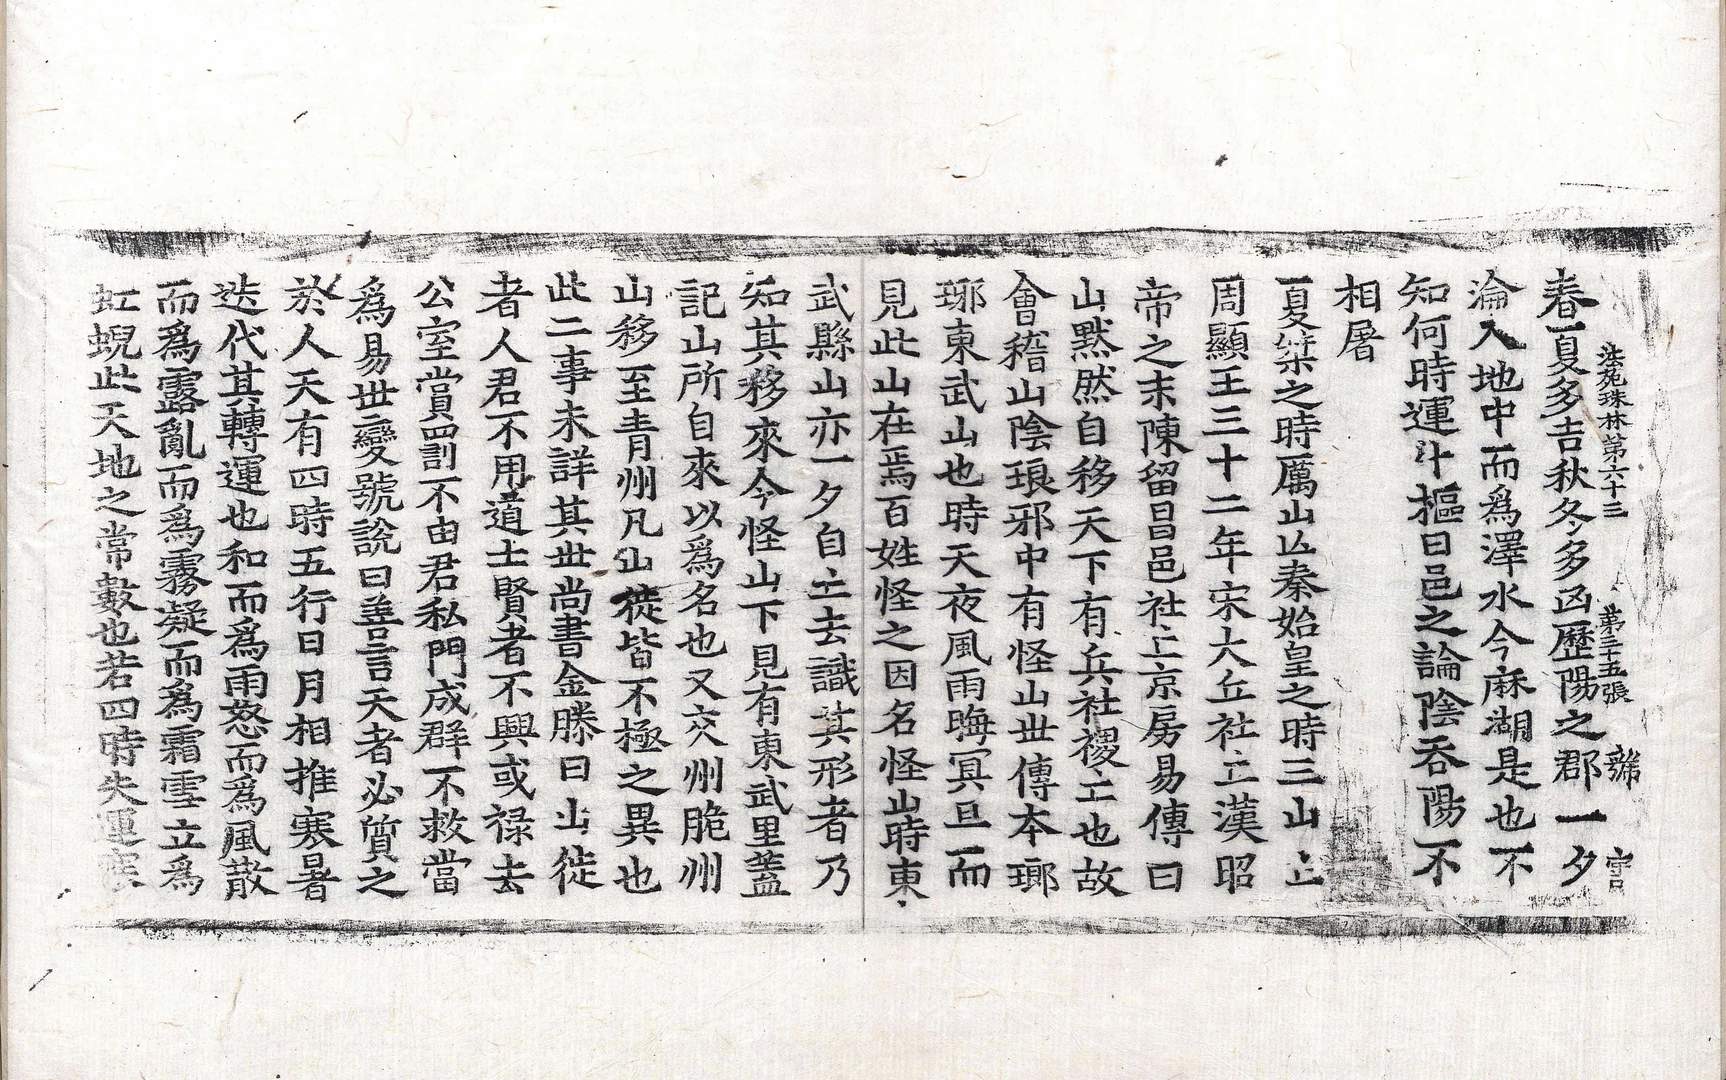 法苑珠林第六十三 第三十五張 號
春夏多吉秋冬多凶歷陽之郡一夕
淪入地中而爲澤水今麻湖是也不
知何時運斗樞曰邑之論陰吞陽不
相屠
夏桀之時厲山亾秦始皇之時三山亾
周顯王三十二年宋大丘社亾漢昭
帝之末陳留昌邑社亾京房易傳曰
山默然自移天下有兵社稷亾也故
會稽山陰琅邪中有怪山世傳本瑯
琊東武山也時天夜風雨晦冥旦而
見此山在焉百姓怪之因名怪山時東
武縣山亦一夕自亾去識其形者乃
知其移來今怪山下見有東武里蓋
記山所自來以爲名也又交州脆州
山移至青州凡山徙皆不極之異也
此二事未詳其世尚書金縢曰山徙
者人君不用道士賢者不興或禄去
公室賞罰不由君私門成群不救當
爲易世變號說曰善言天者必質之
於人天有四時五行日月相推寒暑
迭代其轉運也和而爲雨怒而爲風散
而爲露亂而爲霧凝而爲霜雪立爲
虹蜺此天地之常數也若四時失運寒